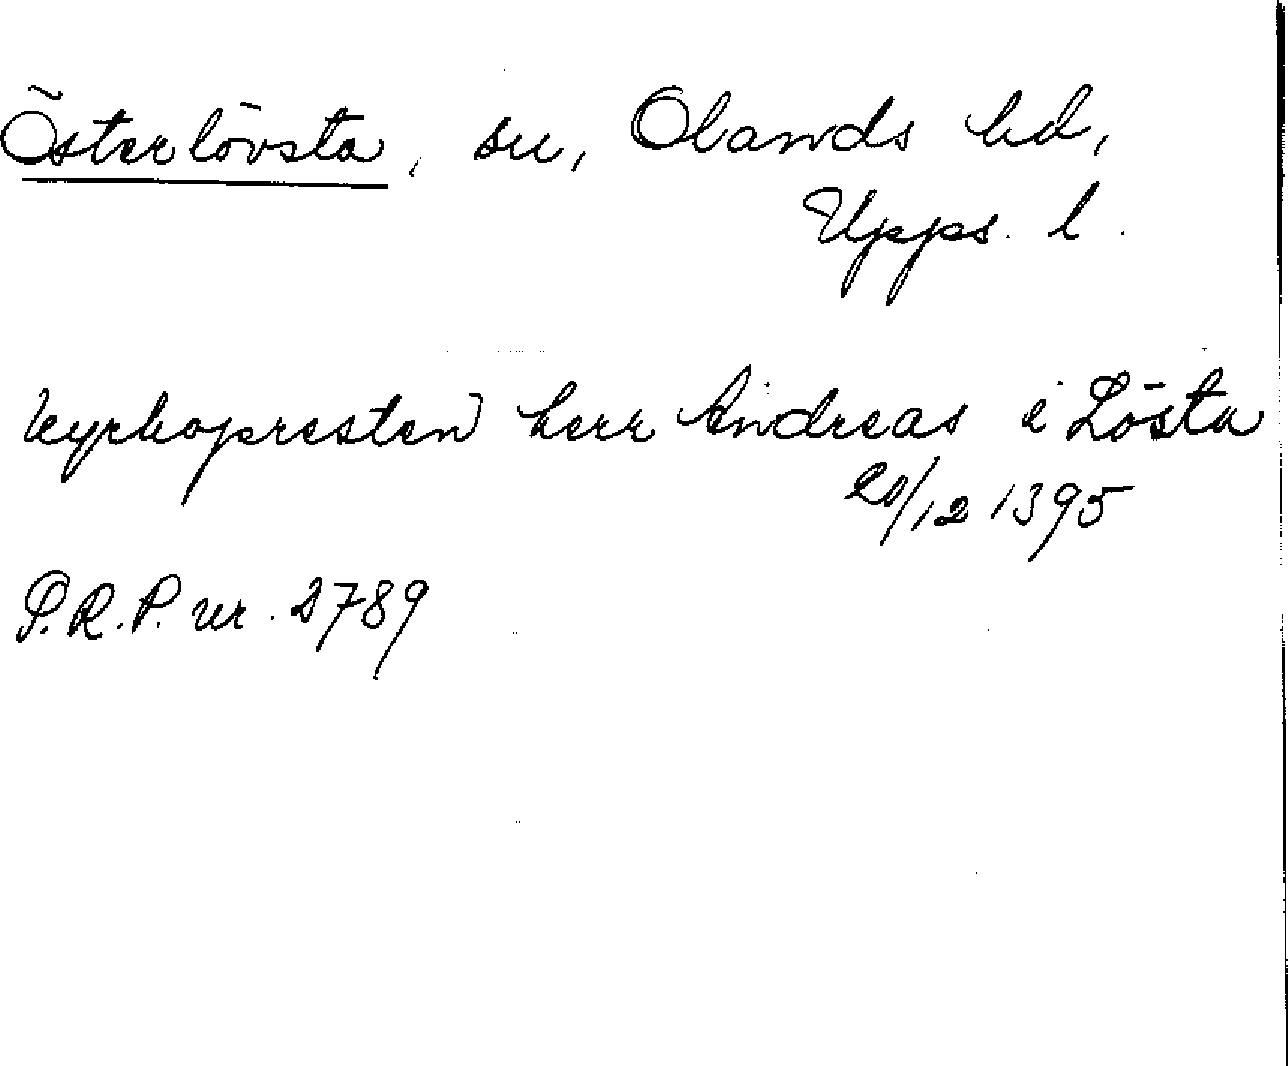 Österlövsta, sn, Olands hd,
Upps. l.
kyrkopresten herr Andreas i Lösta
20/12 1395
P.R.P. nr. 2789